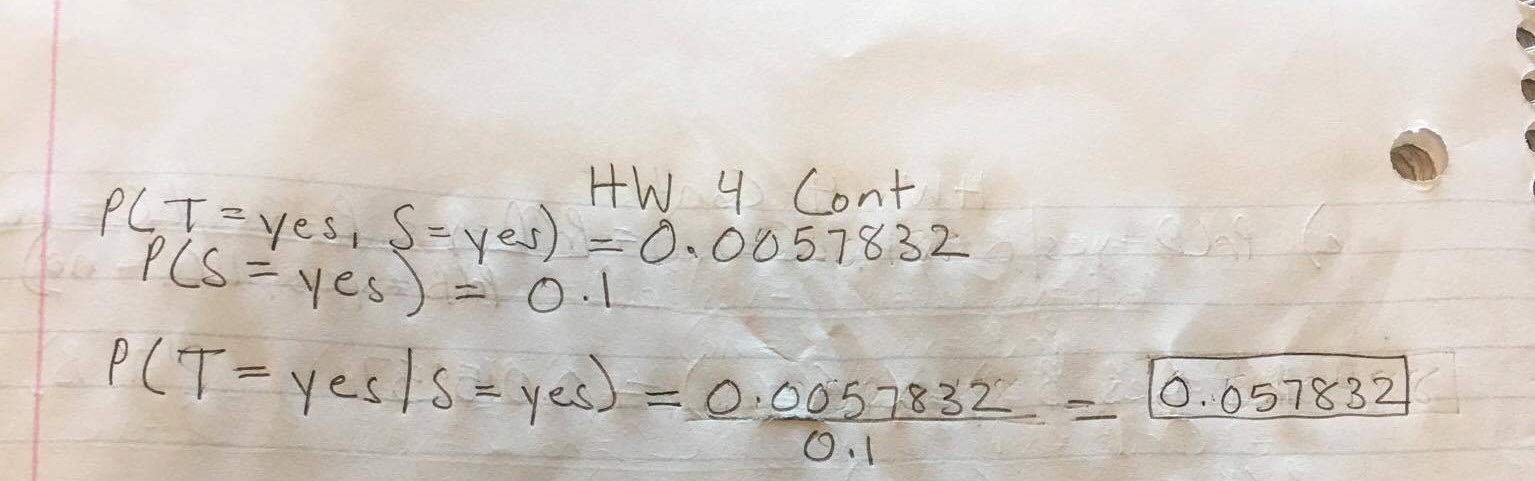 HW 4 Cont
P(T=yes, S=yes) = 0.0057832
P(S=yes) = 0.1
P(T=yes/S=yes) = 0.0057832 = 0.057832
0.1